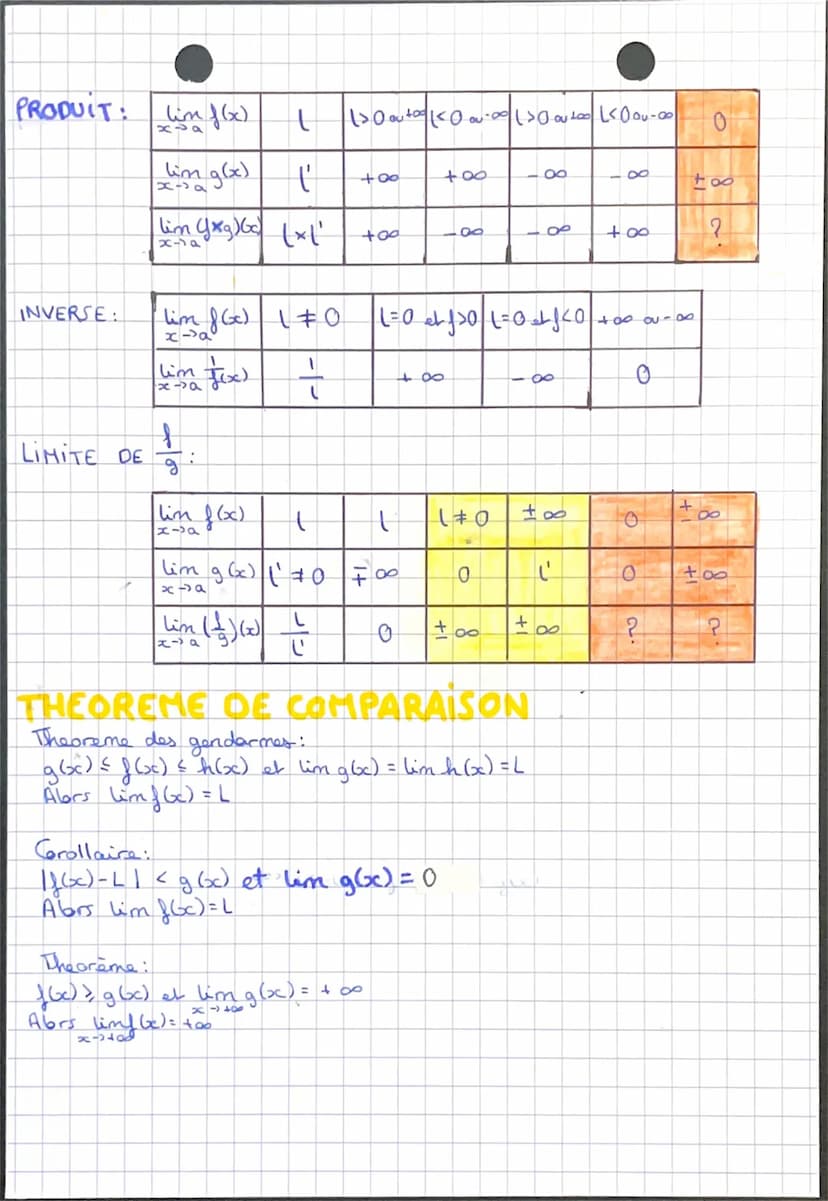 PRODUIT :
lim x→a f(x) | l | l>0 ou +∞ | l<0 ou -∞ | l>0 ou +∞ | l<0 ou -∞ | 0
lim x→a g(x) | l' | +∞ | +∞ | -∞ | -∞ | ±∞
lim x→a (f×g)(x) | l×l' | +∞ | -∞ | -∞ | +∞ | ?
INVERSE :
lim x→a f(x) | l ≠ 0 | l=0 et f>0 | l=0 et f<0 | +∞ ou -∞
lim x→a 1/f(x) | 1/l | +∞ | -∞ | 0
LIMITE DE f/g :
lim x→a f(x) | l | l | l ≠ 0 | ±∞ | 0 | ±∞
lim x→a g(x) | l' ≠ 0 | ∓∞ | 0 | l' | 0 | ±∞
lim x→a (f/g)(x) | l/l' | 0 | ±∞ | ±∞ | ? | ?
THEOREME DE COMPARAISON
Theoreme des gendarmes :
g(x) ≤ f(x) ≤ h(x) et lim g(x) = lim h(x) = L
Alors lim f(x) = L
Corollaire :
|f(x) - L| < g(x) et lim g(x) = 0
Alors lim f(x) = L
Theorème :
f(x) ≥ g(x) et lim x→+∞ g(x) = +∞
Alors lim x→+∞ f(x) = +∞